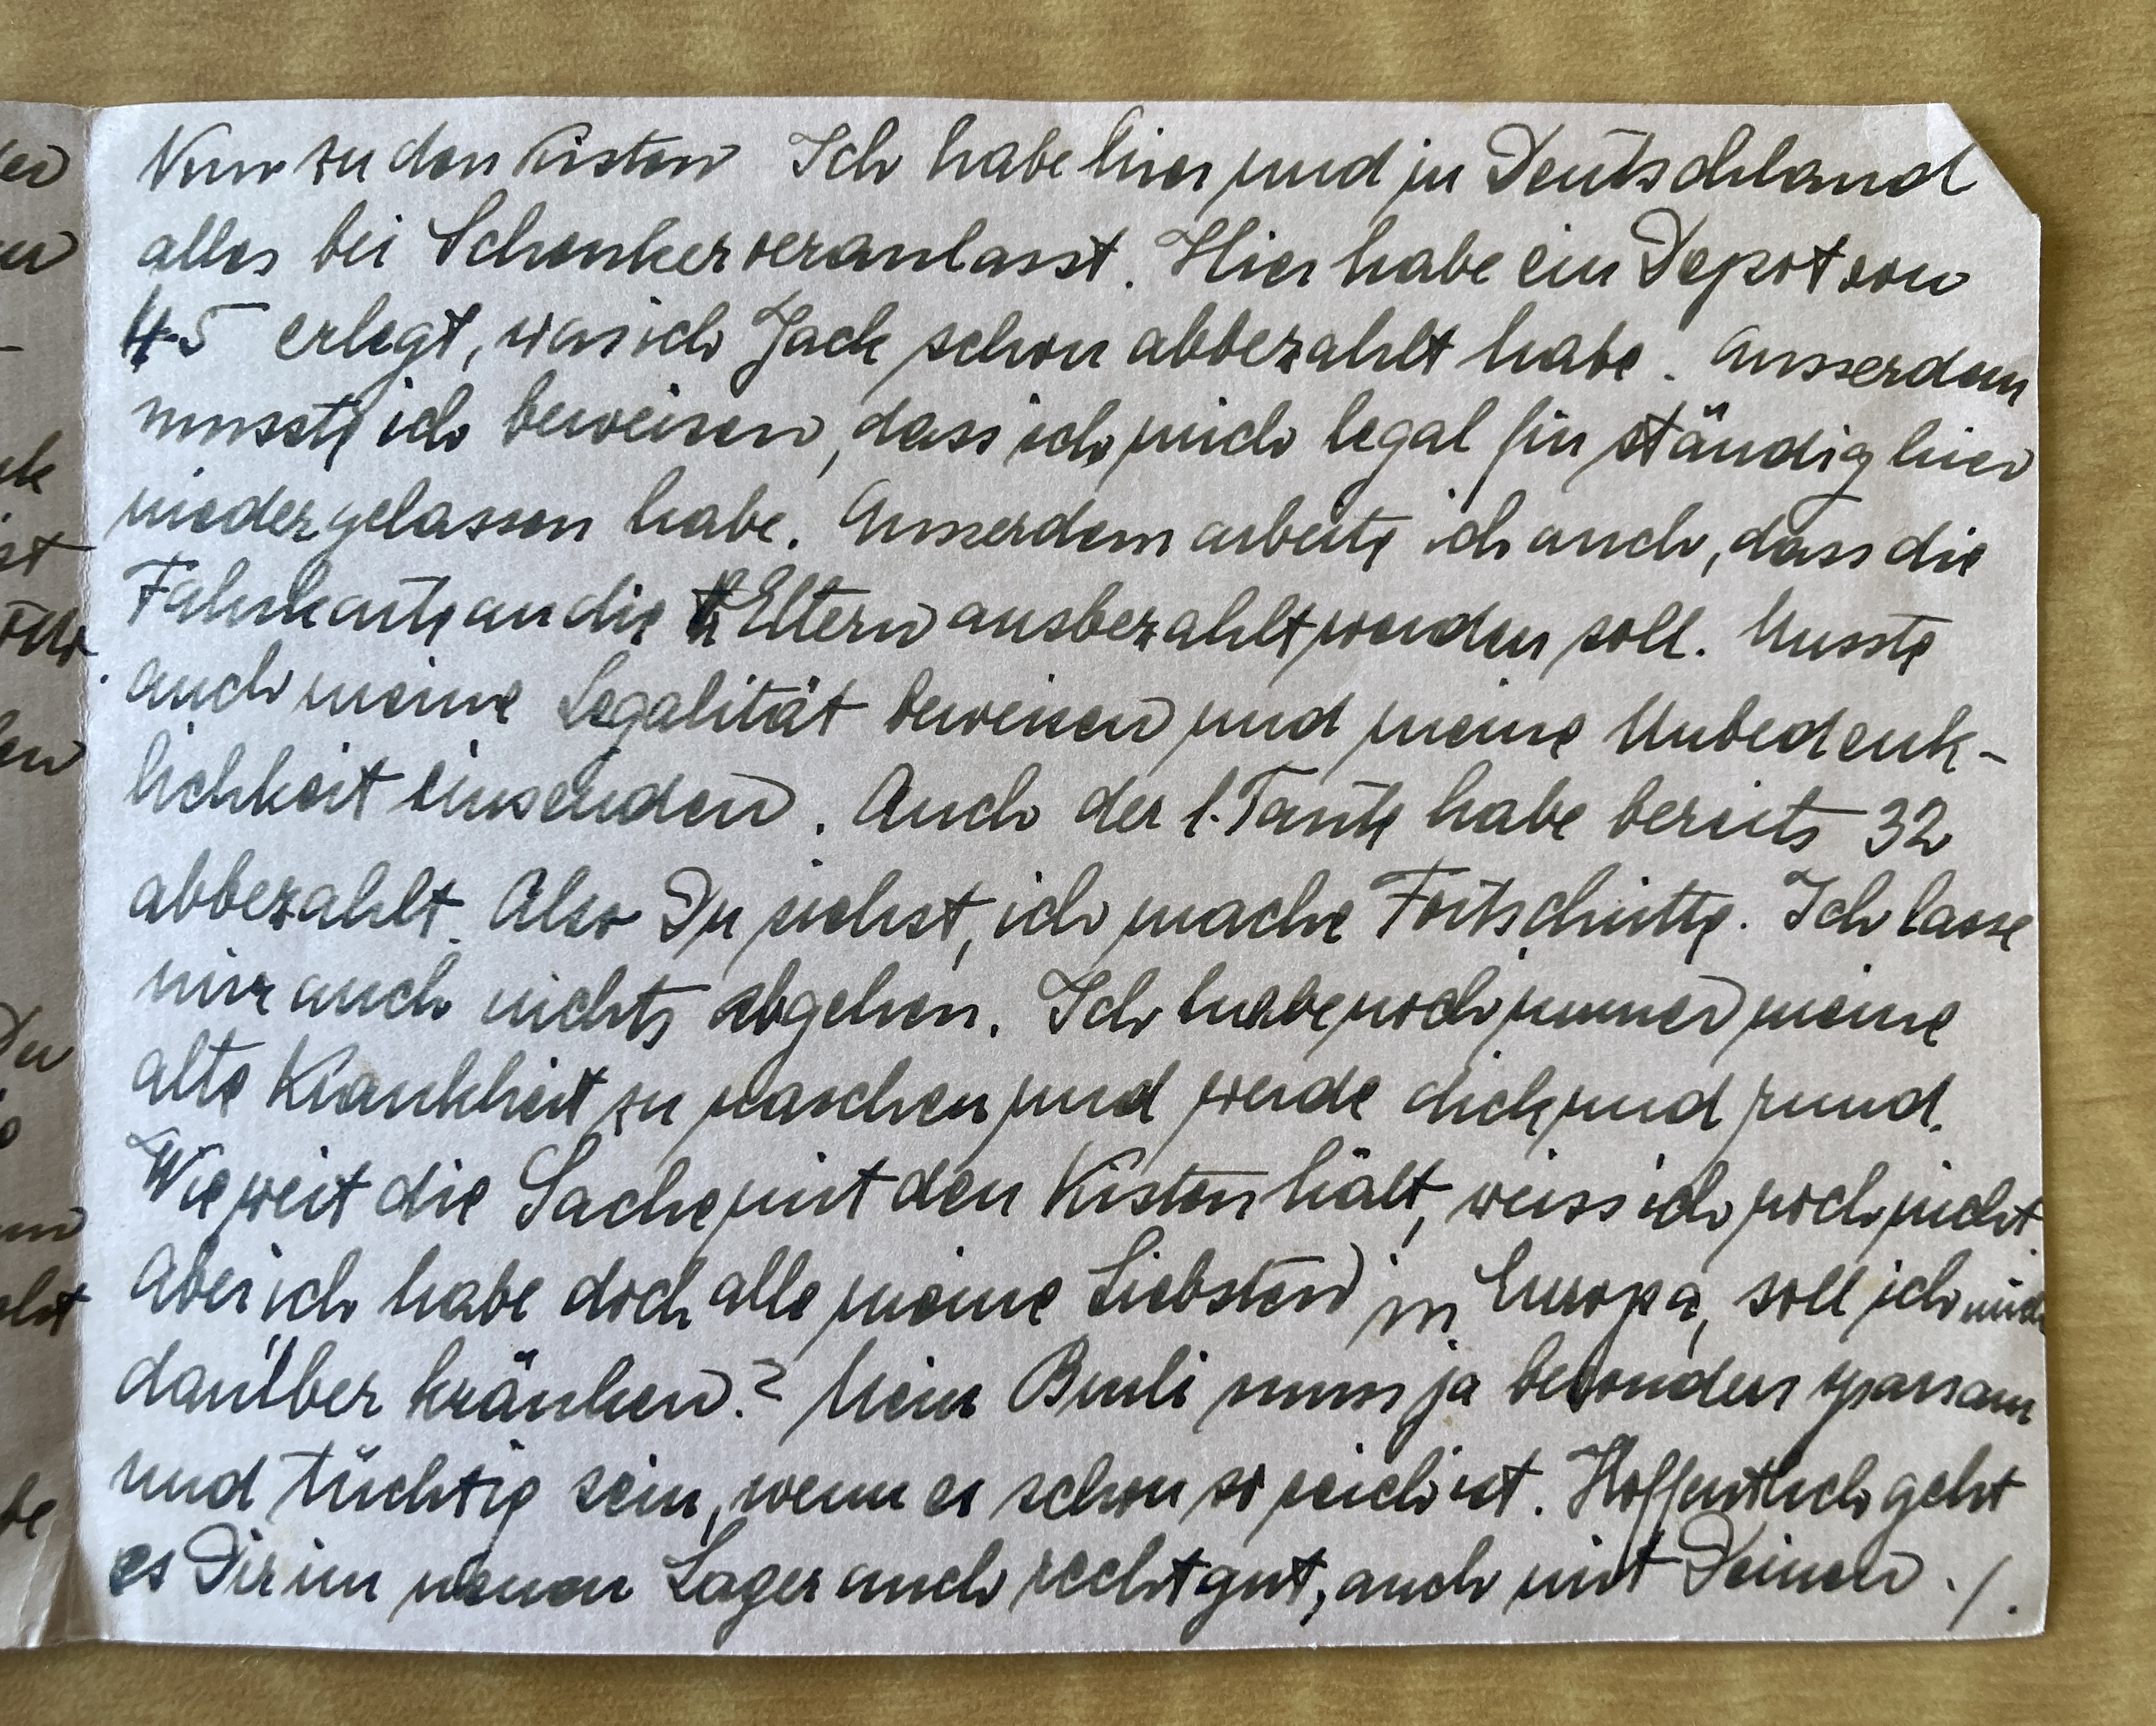 er
Nun zu den Kisten Ich habe hier und in Deutschland
alles bei Schenker veranlasst. Hier habe ein Depot von
45 erlegt, was ich Jack schon abbezahlt habe. Ausserdem
musste ich beweisen, dass ich mich legal für ständig hier
niedergelassen habe. Ausserdem arbeite ich auch, dass die
Fahrkarte an die Eltern ausbezahlt werden soll. Musste
auch meine Legalität beweisen und meine Unbedenk-
lichkeit einsenden. Auch der l. Tante habe bereits 32
abbezahlt. Also Du siehst, ich mache Fortschritte. Ich lasse
mir auch nichts abgehen. Ich habe noch immer meine
alte Krankheit zu naschen und werde dick und rund.
Wie weit die Sache mit den Kisten hält, weiss ich noch nicht.
Aber ich habe doch alle meine Liebsten in Europa, soll ich mich
darüber kränken? Mein Burli muss ja besonders sparsam
und tüchtig sein, wenn er schon so reich ist. Hoffentlich geht
es Dir im neuen Lager auch recht gut, auch mit Deinen ./.